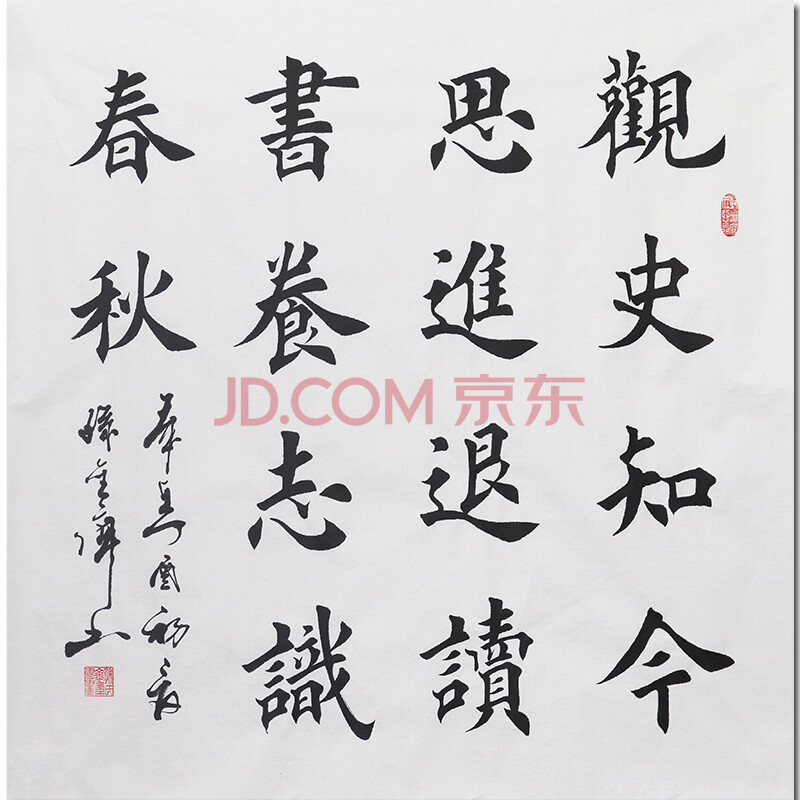 觀史知今
思進退讀
書養志識
春秋
JD.COM 京东